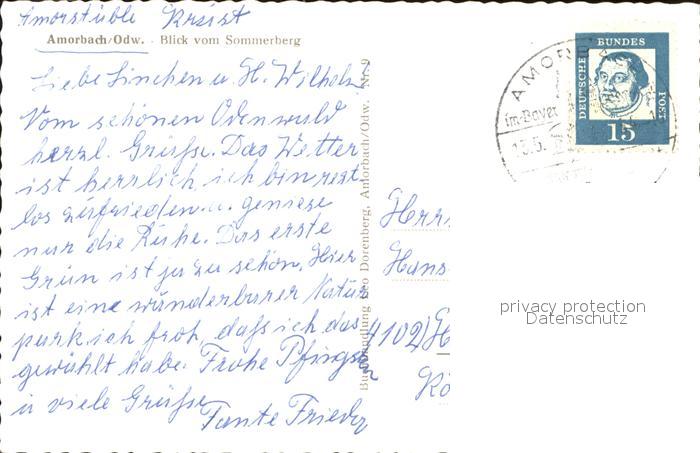 Amorstüble
Amorbach/Odw. - Blick vom Sommerberg
Liebe Linchen u. H. Wilhelm
Vom schönen Odenwald
herzl. Grüße. Das Wetter
ist herrlich ich bin rest
los zufrieden u. geniese
nur die Ruhe. Das erste
Grün ist ja zu schön. Hier
ist eine wunderbarer Natur
park ich froh, daß ich das
gewählt habe. Frohe Pfings
u viele Grüße
Tante Frieda
Buchhandlung Leo Dorenberg, Amorbach/Odw. Nr. 9
Herr
Hans
(4102) H
Kö
AMOR
im Bayer
15.5.
DEUTSCHE
BUNDES
POST
15
privacy protection
Datenschutz